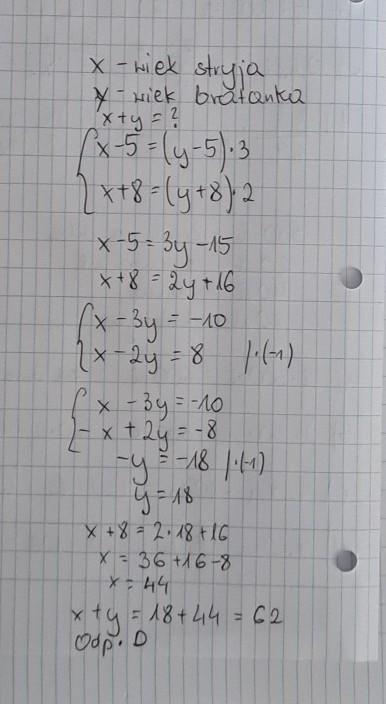 x - wiek stryja
y - wiek bratanka
x+y = ?
x-5 = (y-5)·3
x+8 = (y+8)·2
x-5 = 3y-15
x+8 = 2y+16
x - 3y = -10
x - 2y = 8 /·(-1)
x - 3y = -10
- x + 2y = -8
-y = -18 /·(-1)
y = 18
x+8 = 2·18+16
x = 36+16-8
x = 44
x+y = 18+44 = 62
Odp. D